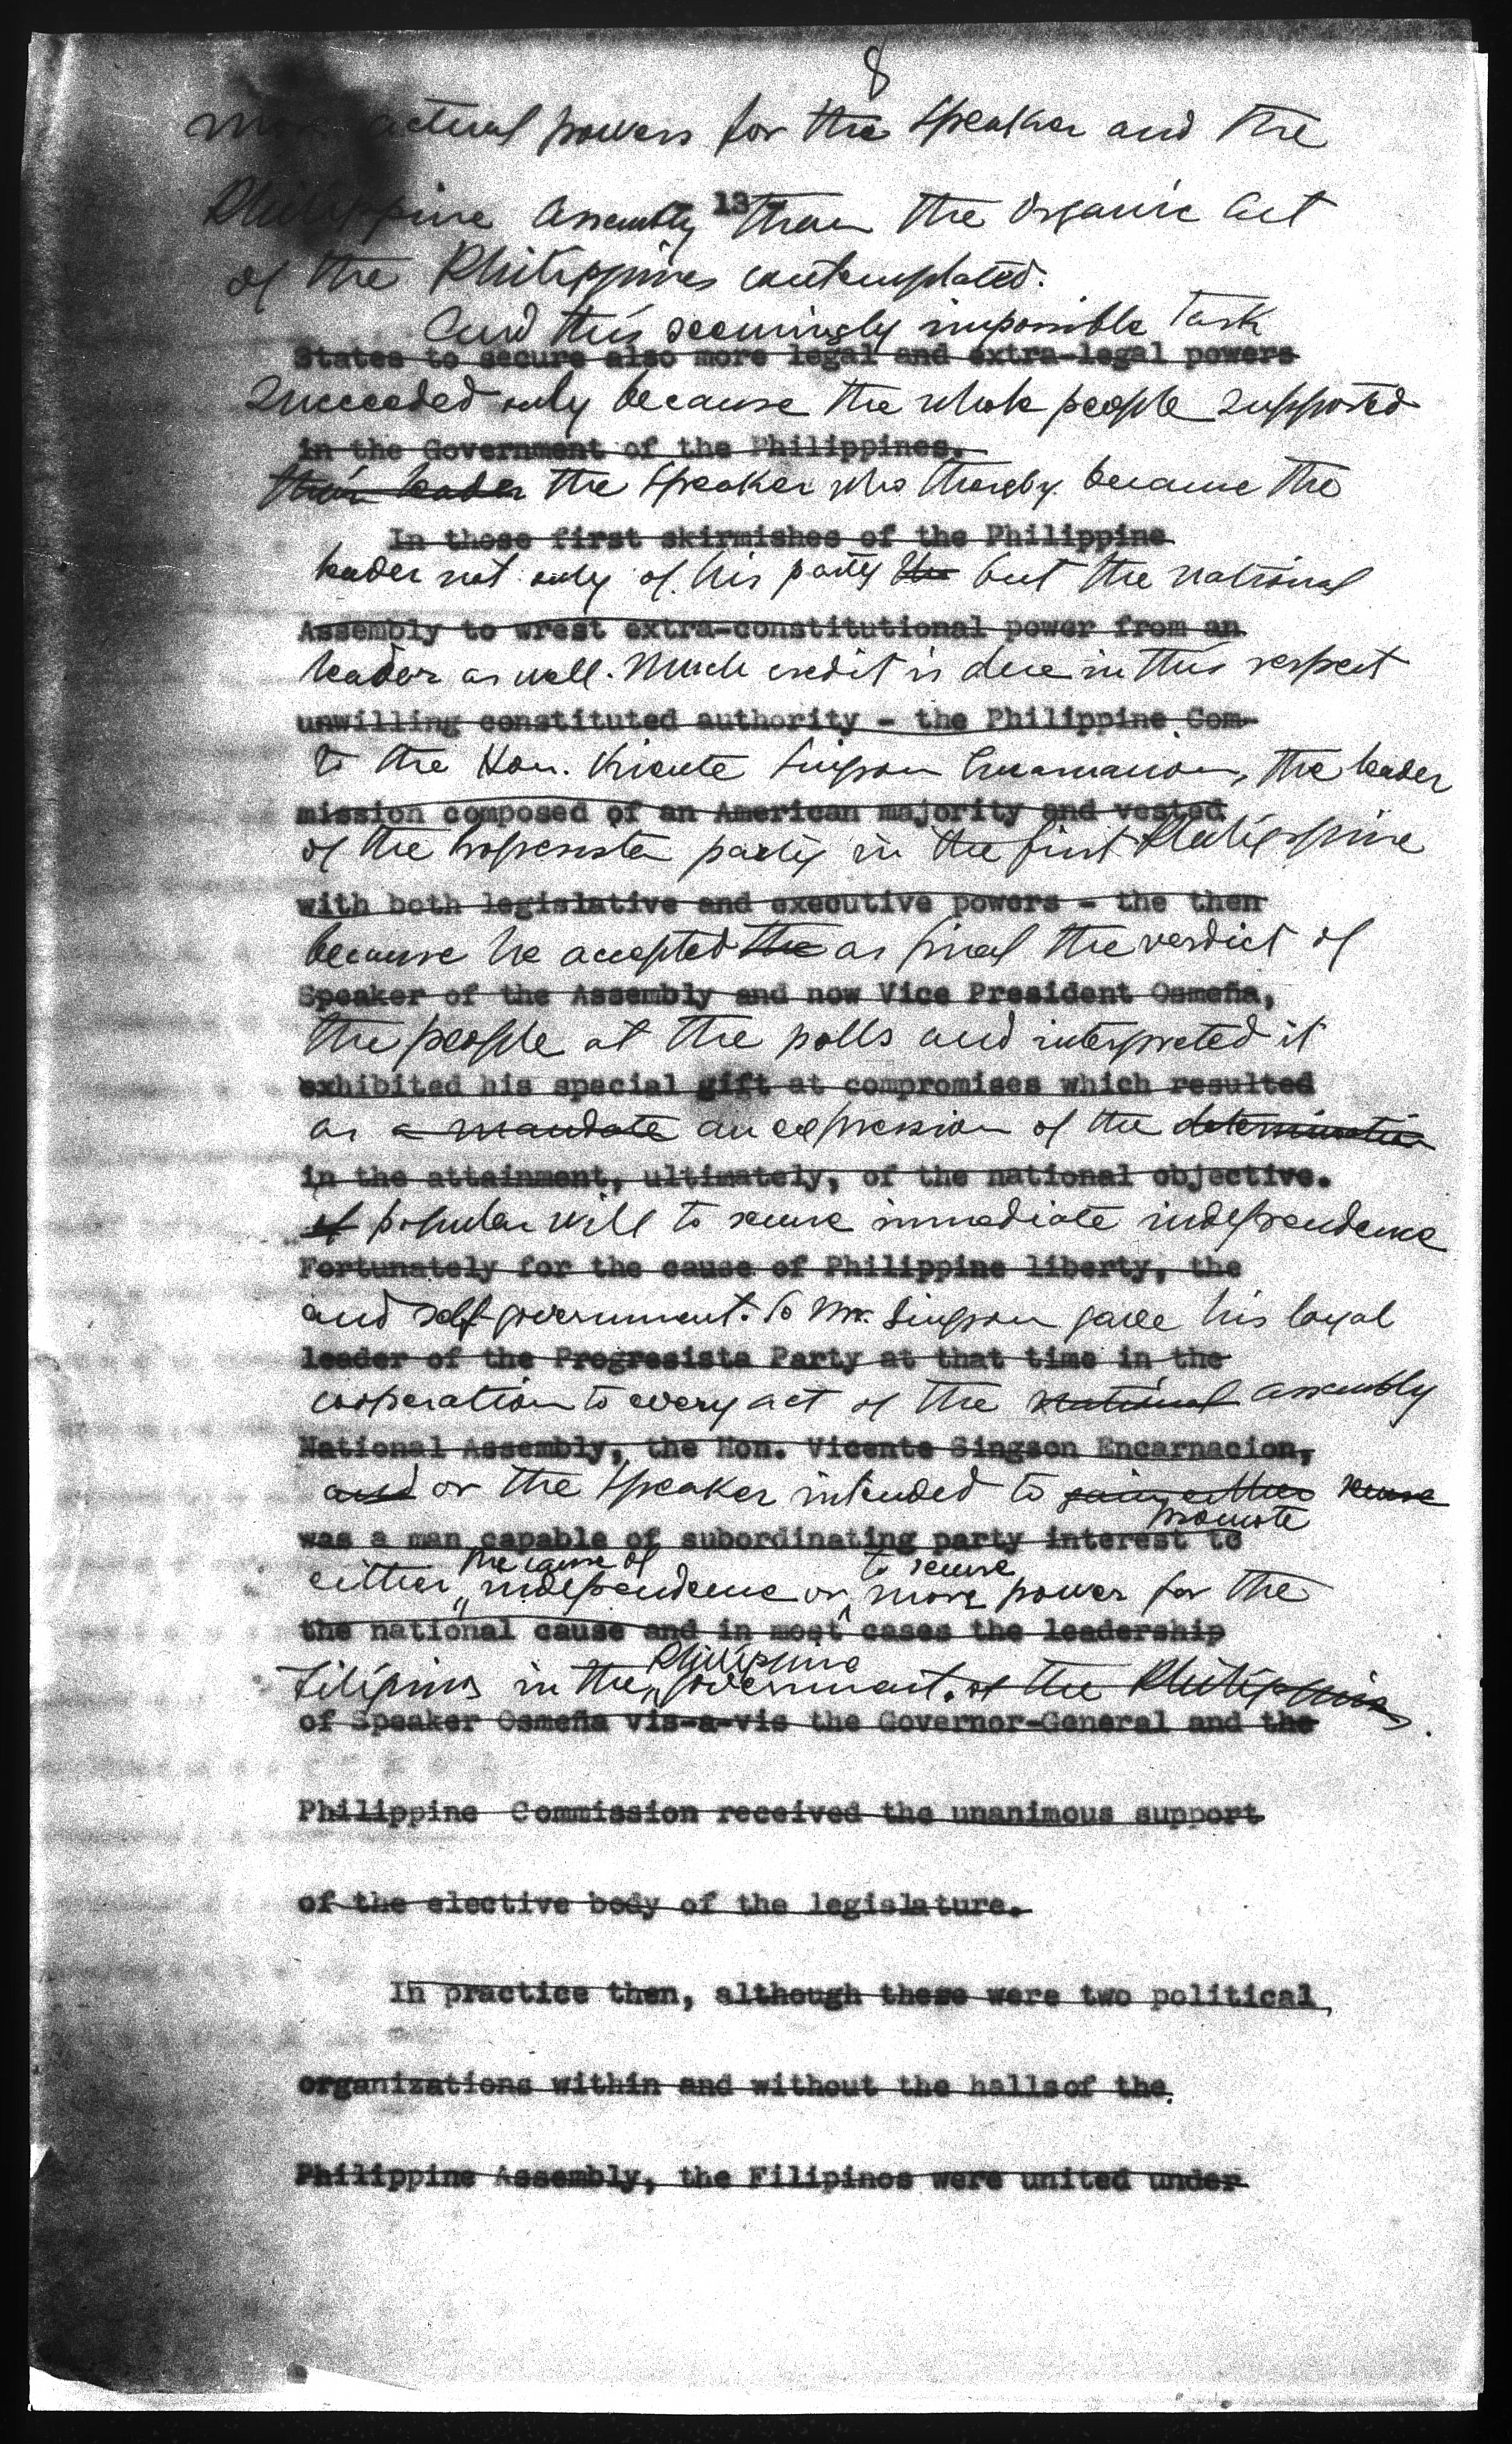 8
more actual powers for the Speaker and the
13
Philippine Assembly than the Organic Act
of the Philippines contemplated.
And this seemingly impossible task
States to secure also more legal and extra-legal powers
succeeded only because the whole people supported
in the Government of the Philippines.
their leader the Speaker who thereby became the
In those first skirmishes of the Philippine
leader not only of his party the but the national
Assembly to wrest extra-constitutional power from an
leader as well. Much credit is due in this respect
unwilling constituted authority - the Philippine Com-
to the Hon. Vicente Singson Encarnacion, the leader
mission composed of an American majority and vested
of the Progresista party in the first Philippine
with both legislative and executive powers - the then
because he accepted the as final the verdict of
Speaker of the Assembly and now Vice President Osmeña,
the people at the polls and interpreted it
exhibited his special gift at compromises which resulted
as a mandate an expression of the determination
in the attainment, ultimately, of the national objective.
of popular will to secure immediate independence
Fortunately for the cause of Philippine liberty, the
and self-government. So Mr. Singson gave his loyal
leader of the Progresista Party at that time in the
cooperation to every act of the national assembly
National Assembly, the Hon. Vicente Singson Encarnacion,
and or the Speaker intended to gain either secure
promote
was a man capable of subordinating party interest to
the cause of to secure
either independence or more power for the
the national cause and in most cases the leadership
Philippine
Filipinos in the government. of the Philippines.
of Speaker Osmeña vis-a-vis the Governor-General and the
Philippine Commission received the unanimous support
of the elective body of the legislature.
In practice then, although these were two political
organizations within and without the hallsof the
Philippine Assembly, the Filipinos were united under